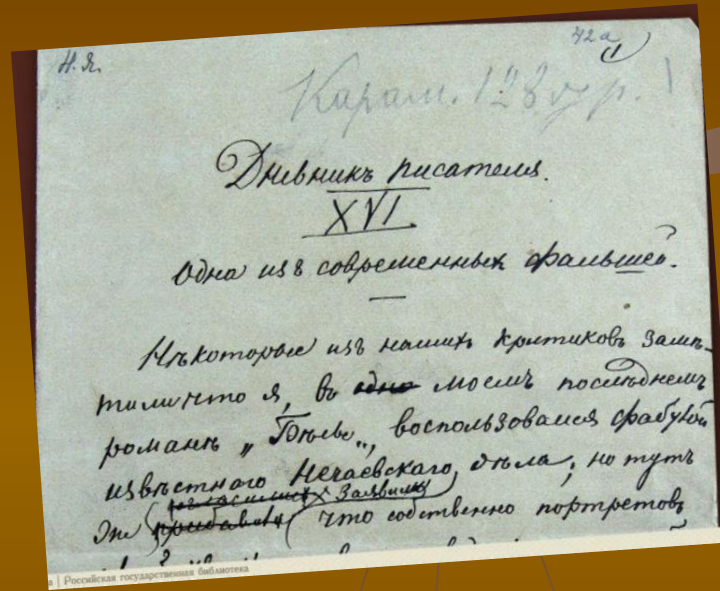 Н. Я.
42а
1
Карам. 128
Дневникъ писателя.
XVI.
Одна изъ современныхъ фальшей.
Нѣкоторые изъ нашихъ критиковъ замѣ-
тили что я, въ моемъ послѣднемъ
романѣ „Бѣсы„, воспользовался фабулой
извѣстнаго Нечаевскаго дѣла; но тутъ
заявили
же что собственно портретовъ
а | Российская государственная библиотека